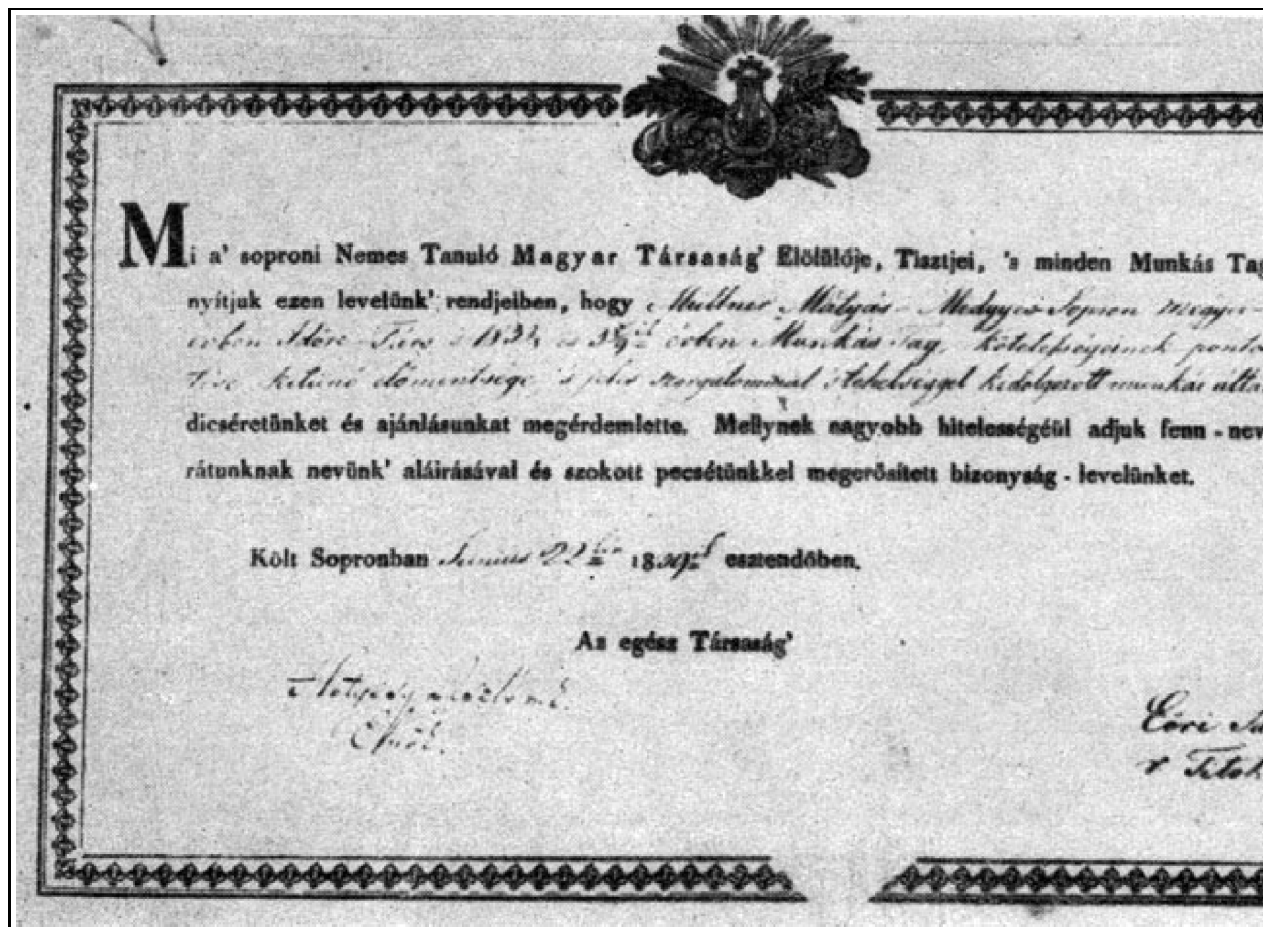 Mi a' soproni Nemes Tanuló Magyar Társaság' Elölülője, Tisztjei, 's minden Munkás Tag
nyítjuk ezen levelünk' rendjeiben, hogy Müllner Mátyás Medgyes Sopron megye-
évben 's évben Munkás Tag, kötelességeinek ponto
téve, kitünő 's jeles szorgalommal 's tehetséggel kidolgozott munkái által
dicséretünket és ajánlásunkat megérdemlette. Mellynek nagyobb hitelességéül adjuk fenn-nev
rátunknak nevünk' aláirásával és szokott pecsétünkkel megerősitett bizonyság-levelünket.
Költ Sopronban Junius 22 1839 esztendőben.
Az egész Társaság'
Elnök.